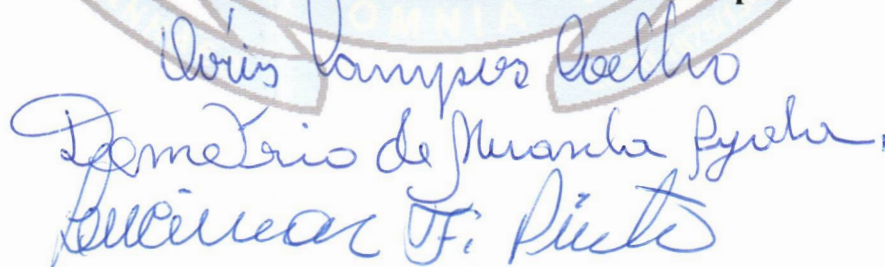 OMNIA
Dóris Campos Coelho
Demétrio de Miranda
Lucimar F. Pinto